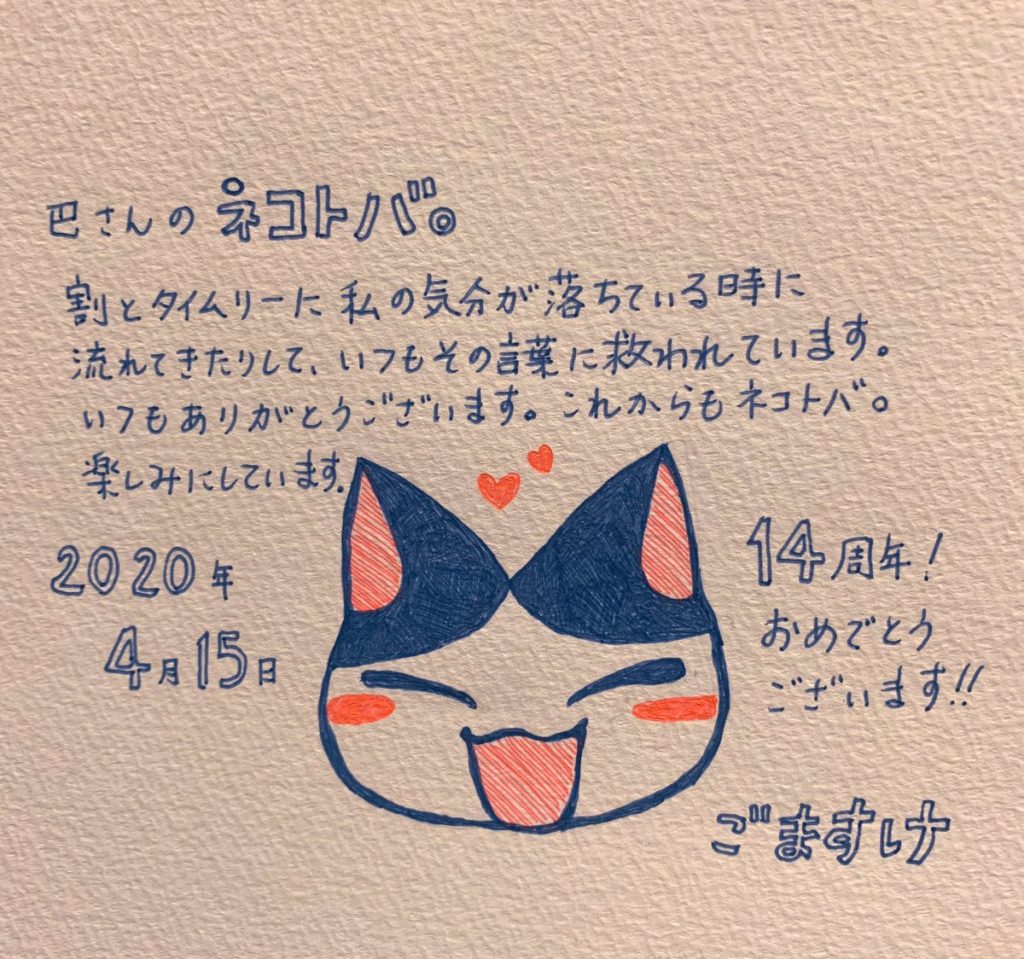 巴さんの ネコトバ。
割とタイムリーに 私の気分が落ちている時に
流れてきたりして、いつもその言葉に救われています。
いつもありがとうございます。これからもネコトバ。
楽しみにしています。
2020年
4月15日
14周年!
おめでとう
ございます!!
ごますけ